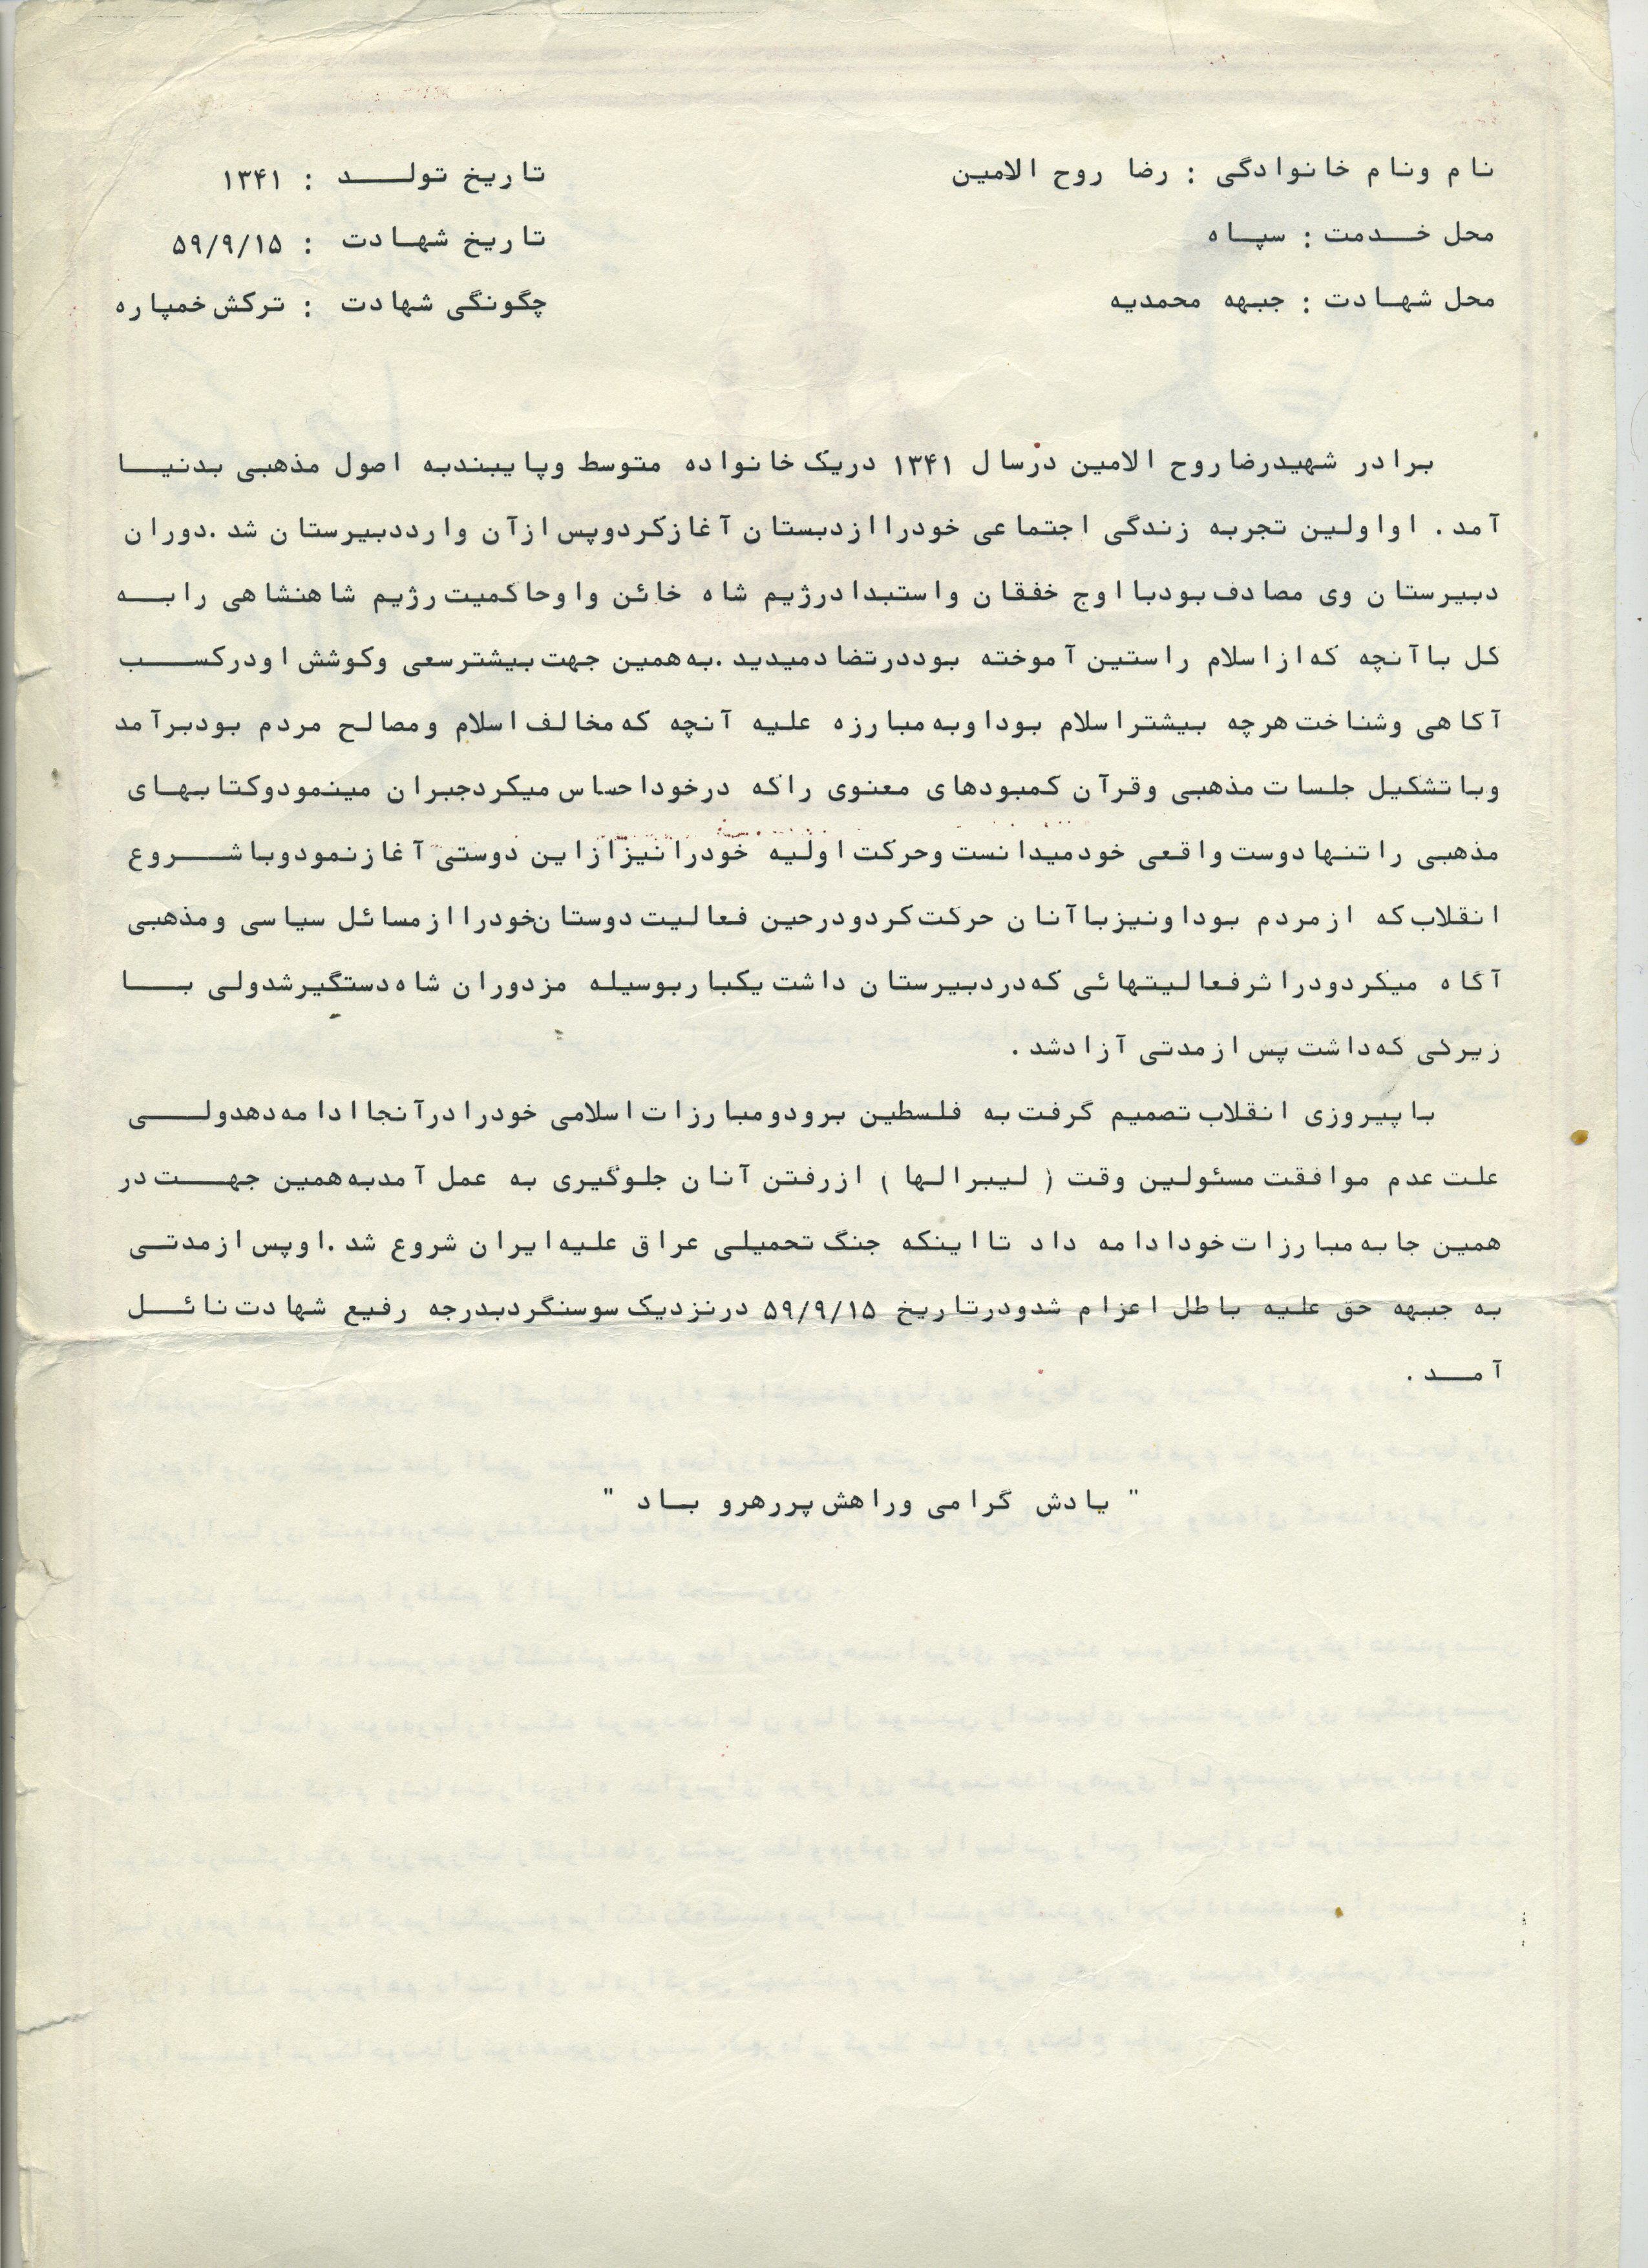 نام ونام خانوادگی : رضا روح الامین
تاریخ تولد : ۱۳۴۱
محل خدمت : سپاه
تاریخ شهادت : ۵۹/۹/۱۵
محل شهادت : جبهه محمدیه
چگونگی شهادت : ترکش خمپاره
برادر شهیدرضاروح الامین درسال ۱۳۴۱ دریک خانواده متوسط وپایبندبه اصول مذهبی بدنیا
آمد . اواولین تجربه زندگی اجتماعی خودراازدبستان آغازکردوپس ازآن وارددبیرستان شد .دوران
دبیرستان وی مصادف بودبااوج خفقان واستبدادرژیم شاه خائن واوحاکمیت رژیم شاهنشاهی رابه
کل باآنچه که ازاسلام راستین آموخته بوددرتضادمیدید .به همین جهت بیشترسعی وکوشش اودرکسب
آکاهی وشناخت هرچه بیشتراسلام بوداوبه مبارزه علیه آنچه که مخالف اسلام ومصالح مردم بودبرآمد
وباتشکیل جلسات مذهبی وقرآن کمبودهای معنوی راکه درخوداحساس میکردجبران مینمودوکتابهای
مذهبی راتنهادوست واقعی خودمیدانست وحرکت اولیه خودرانیزازاین دوستی آغازنمودوباشروع
انقلاب که ازمردم بوداونیزباآنان حرکت کردودرحین فعالیت دوستان خودراازمسائل سیاسی ومذهبی
آگاه میکردودراثرفعالیتهائی که دردبیرستان داشت یکباربوسیله مزدوران شاه دستگیرشدولی با
زیرکی که داشت پس ازمدتی آزادشد .
باپیروزی انقلاب تصمیم گرفت به فلسطین برودومبارزات اسلامی خودرادرآنجاادامه دهدولی
علت عدم موافقت مسئولین وقت ( لیبرالها ) ازرفتن آنان جلوگیری به عمل آمدبه همین جهت در
همین جابه مبارزات خودادامه داد تااینکه جنگ تحمیلی عراق علیه ایران شروع شد .اوپس ازمدتی
به جبهه حق علیه باطل اعزام شدودرتاریخ ۵۹/۹/۱۵ درنزدیک سوسنگردبدرجه رفیع شهادت نائل
آمد .
" یادش گرامی وراهش پررهرو باد "